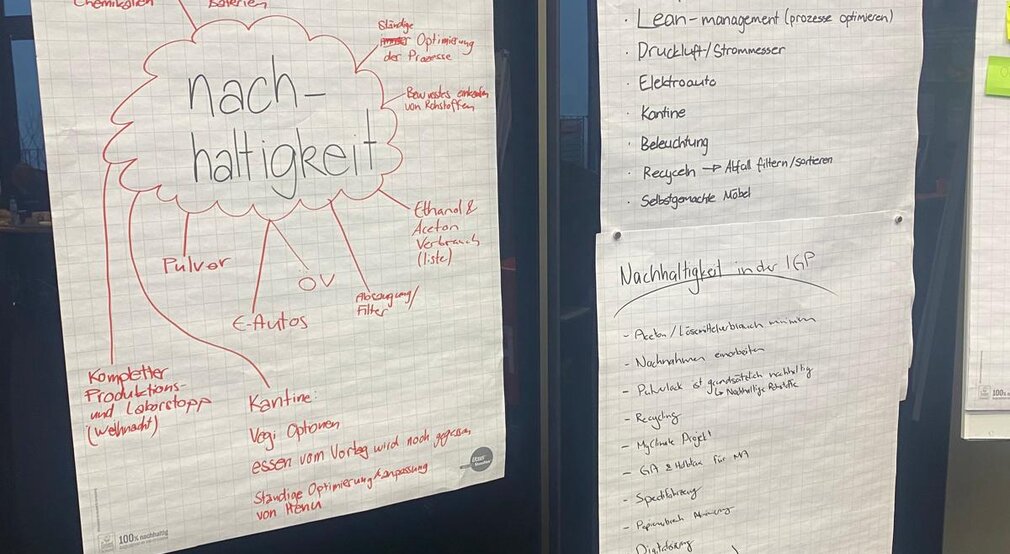 Chemikalien
Baterien
nach-
haltigkeit
Ständige
Optimierung
der Prozesse
Bewusstes einkaufen
von Rohstoffen
Ethanol &
Aceton
Verbrauch
(liste)
Absaugung/
Filter
ÖV
E-Autos
Pulver
Kompletter
Produktions-
und Laborstopp
(Weihnacht)
Kantine:
Vegi Optionen
essen vom Vortag wird noch gegessen
Ständige Optimierung & anpassung
von Menu
100% nachhaltig
· Lean-management (prozesse optimieren)
· Druckluft/Strommesser
· Elektroauto
· Kantine
· Beleuchtung
· Recyceln → Abfall filtern/sortieren
· Selbstgemachte Möbel
Nachhaltigkeit in der IGP
- Aceton / Lösmittelverbrauch
- einarbeiten
- Pulverlack ist grundsätzlich nachhaltig
↳ Nachhaltige Rohstoffe
- Recycling
- MyClimate Projekt
- GA & Halbtax für MA
-
-
Digitalisierung
100%